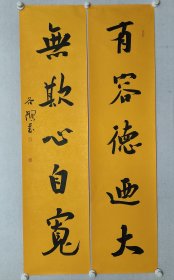 有容德迺大
無欺心自寬